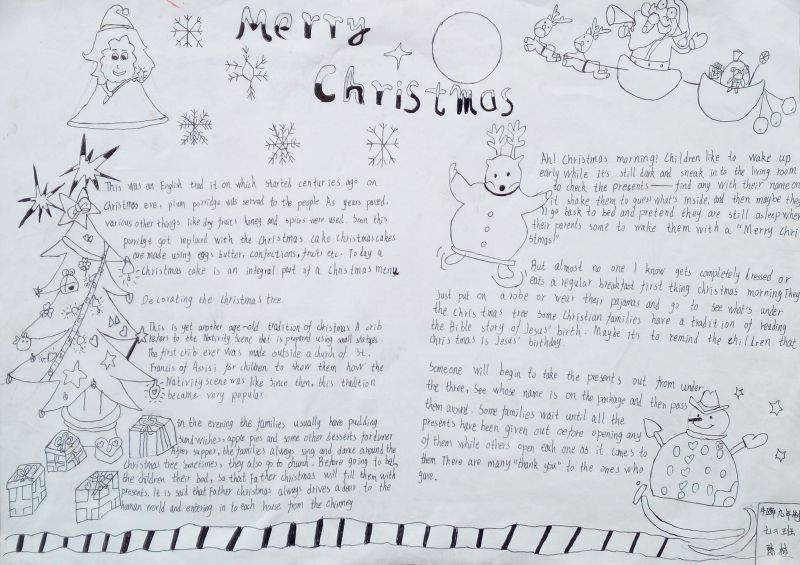 Merry
Christmas
This was an English trad it on which started centuries ago on
Christmas eve, plum porridge was served to the people As years paved,
various other things like dry fruits honey and spices were used. Soon this
porridge got replaced with the Christmas cake Christmas cakes
are made using eggs butter, confections, fruits etc. Today a
Christmas cake is an integral part of a Christmas menu
Decorating the Christmas tree
This is yet another age-old tradition of Christmas A crib
refers to the Nativity Scene that is prepared using small statues.
The first crib ever was made outside a church of St.
Francis of Assisi for children to show them how the
Nativity scene was like Since then, this tradition
became very popular
In the evening the families usually have pudding
sandwishes, apple pies and some other desserts for dinner
After supper, the families always sing and dance around the
Christmas tree Sometimes, they also go to church. Before going to bed,
the children their bad, so that Father christmas will fill them with
presents. It is said that Father Christmas always drives a deer to the
human world and entering in to each house from the chimney
Ah! Christmas morning! Children like to wake up
early while It's still dark and sneak into the living room
to check the presents — find any with their name on
it shake them to guess what's inside, and then maybe they
'll go back to bed and pretend they are still asleep when
their parents some to wake them with a "Merry Chri
stmas!"
But almost no one I know gets completely dressed or
eats a regular breakfast first thing christmas morning They
just put on a robe or wear their pajamas and go to see what's under
the Christmas tree Some Christian families have a tradition of reading
the Bible story of Jesus' birth. Maybe its to remind the children that
Christmas is Jesus' birthday.
Someone will begin to take the presents out from under
the three, see whose name is on the package and then pass
them around. Some families wait until all the
presents have been given out before opening any
of them while others open each one as it comes to
them There are many "thank you" to the ones who
gave.
七六班